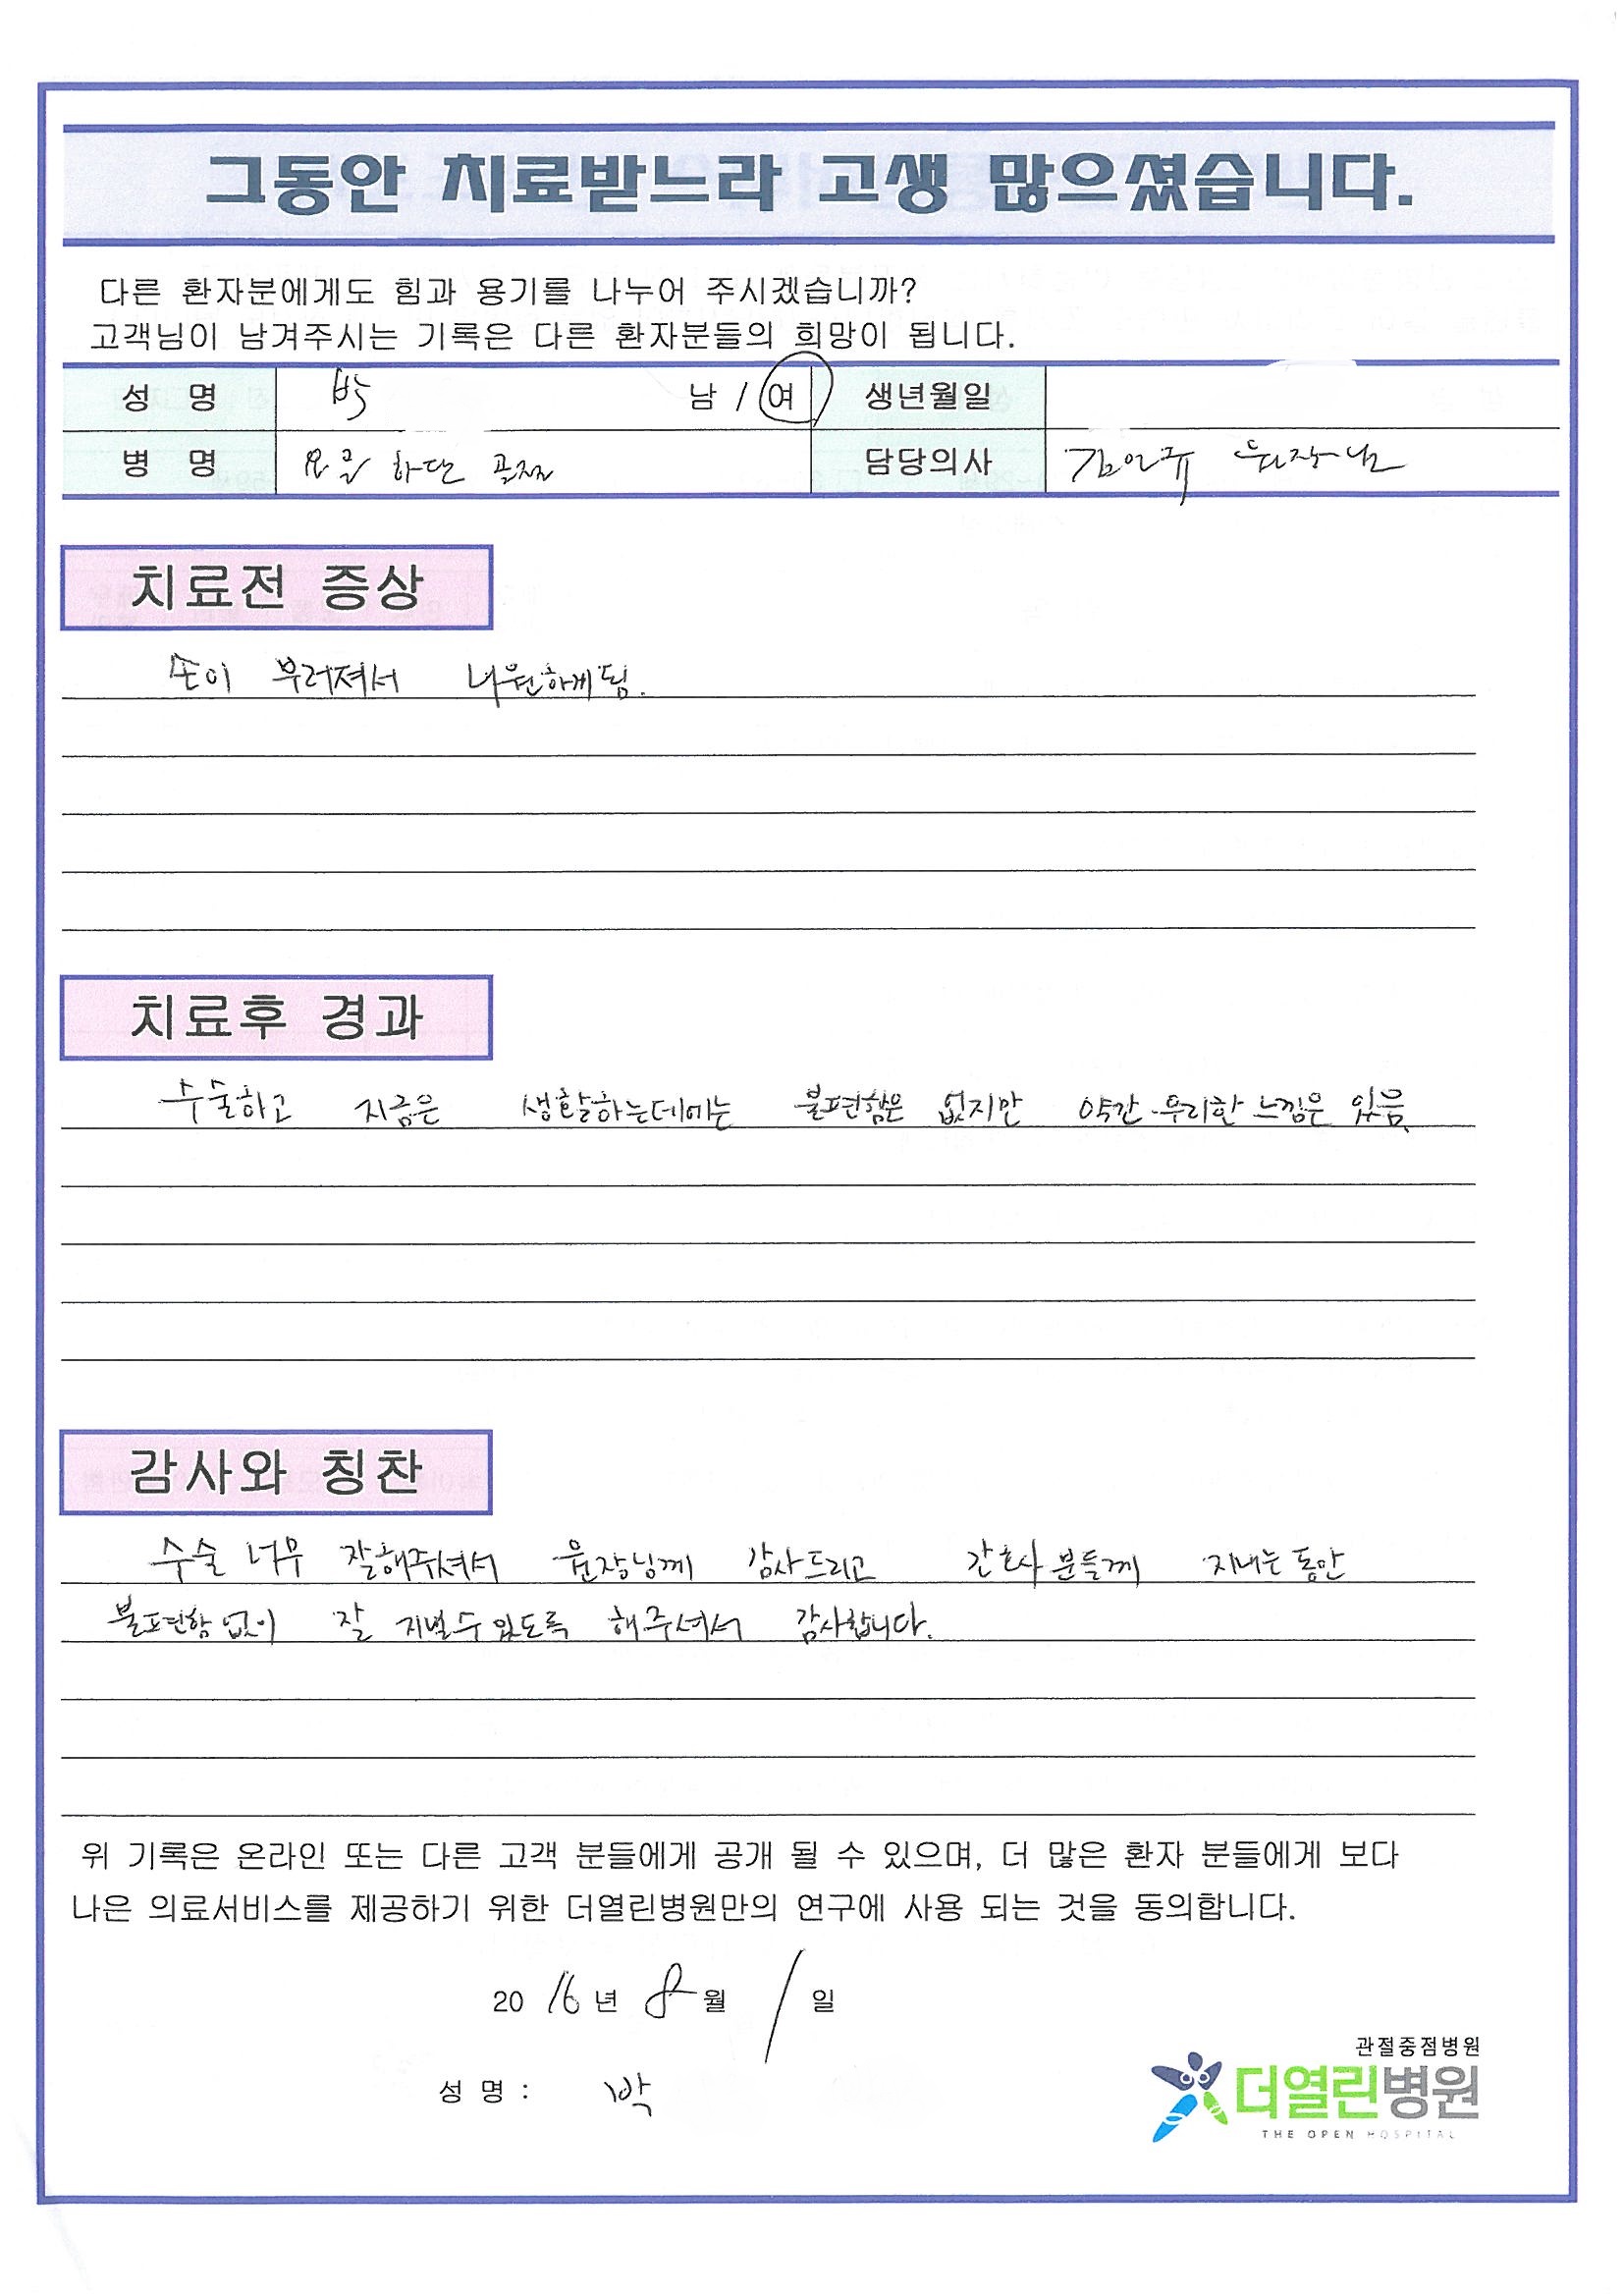 그동안 치료받느라 고생 많으셨습니다.
다른 환자분에게도 힘과 용기를 나누어 주시겠습니까?
고객님이 남겨주시는 기록은 다른 환자분들의 희망이 됩니다.
성 명 박 남 / 여 생년월일
병 명 요골 하단 골절 담당의사 김인규 원장님
치료전 증상
손이 부러져서 내원하게됨.
치료후 경과
수술하고 지금은 생활하는데에는 불편함은 없지만 약간 우리한 느낌은 있음.
감사와 칭찬
수술 너무 잘해주셔서 원장님께 감사드리고 간호사 분들께 지내는 동안
불편함 없이 잘 지낼수 있도록 해주셔서 감사합니다.
위 기록은 온라인 또는 다른 고객 분들에게 공개 될 수 있으며, 더 많은 환자 분들에게 보다
나은 의료서비스를 제공하기 위한 더열린병원만의 연구에 사용 되는 것을 동의합니다.
2016년 8월 1일
관절중점병원
성 명 : 박
더열린병원
THE OPEN HOSPITAL